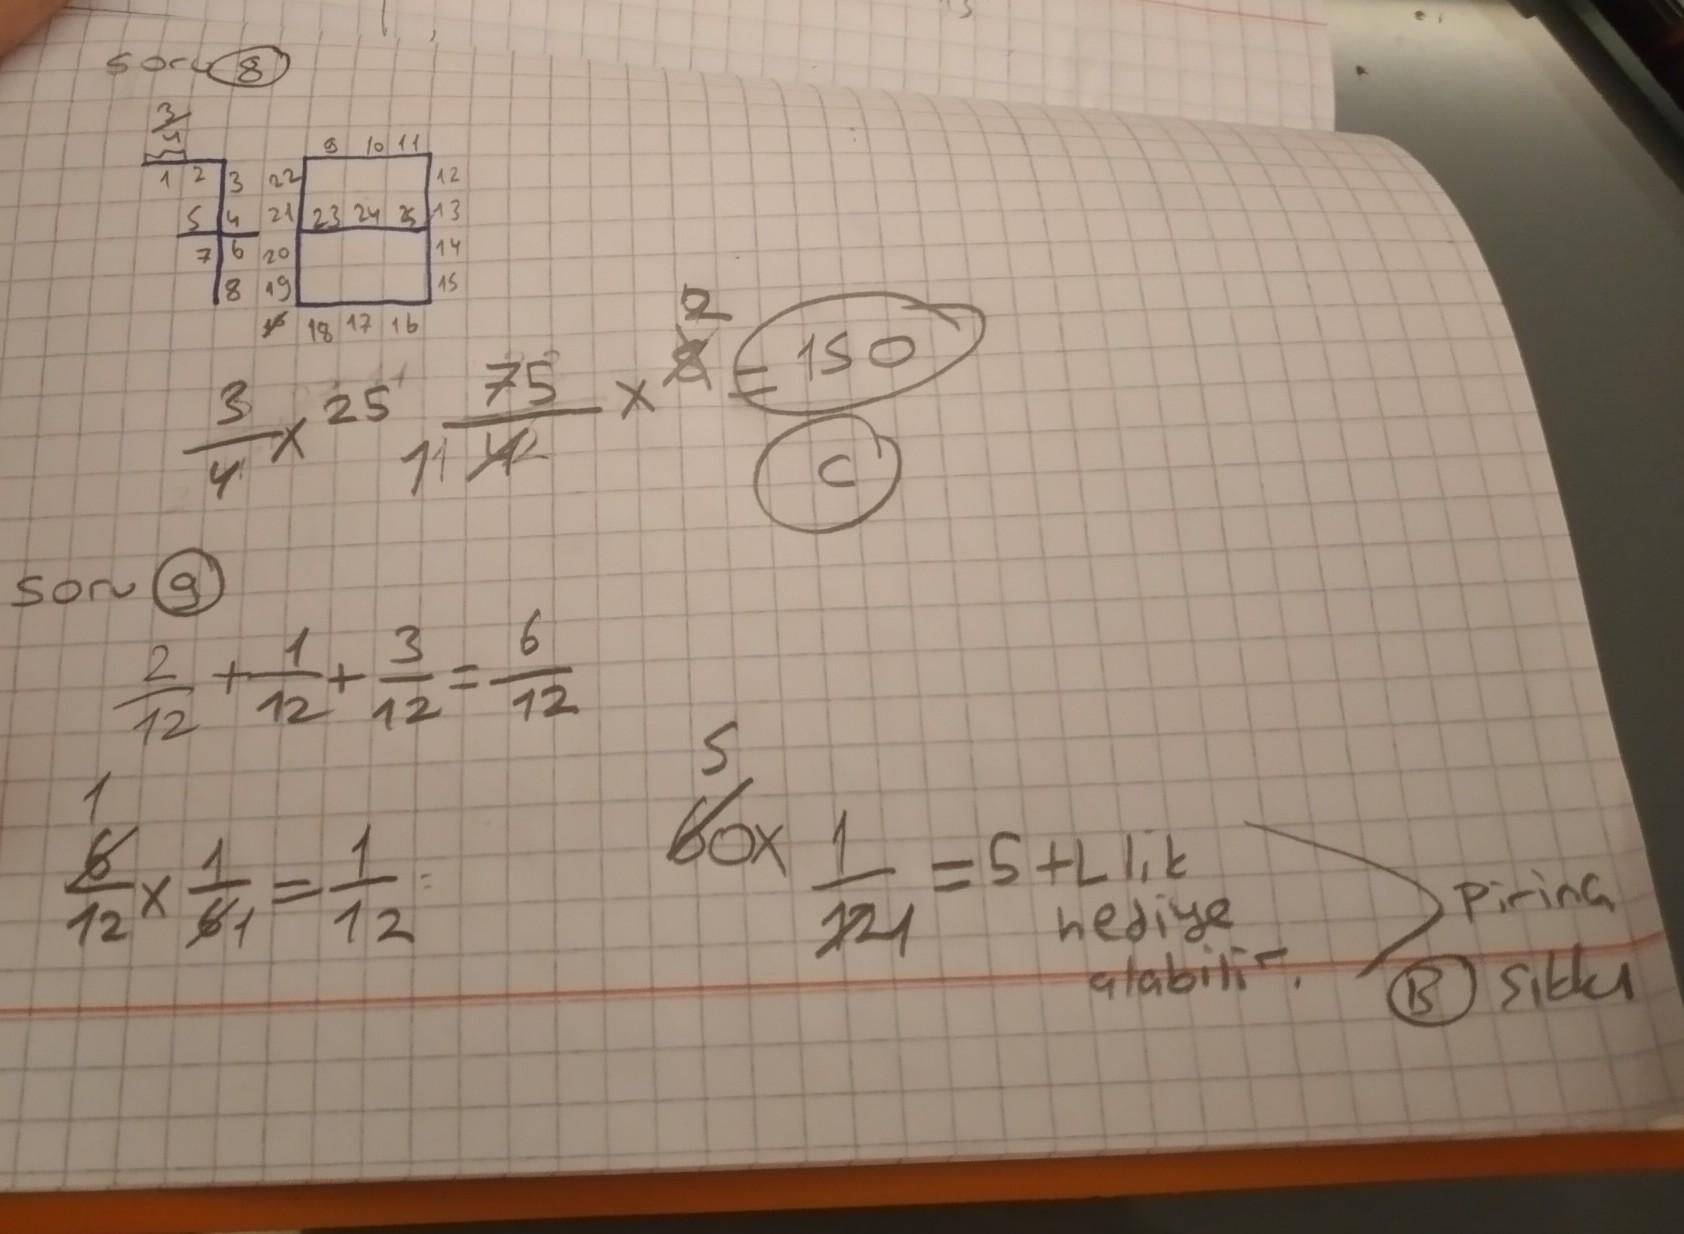 soru 8
3/4
9 10 11
1 2 3 22 12
5 4 21 23 24 25 13
7 6 20 14
8 19 15
18 17 16
3/4 x 25 75/4 x 8 2 = 150
1
C
soru 9
2/12 + 1/12 + 3/12 = 6/12
1 5
6/12 x 1/6 1 = 1/12 = 60 x 1/12 1 = 5 +L lik
hediye
alabilir.
Pirinç
B Şıkkı